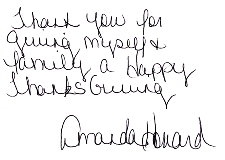 Thank you for
Giving myself &
family a Happy
Thanks Giving
Amanda Howard